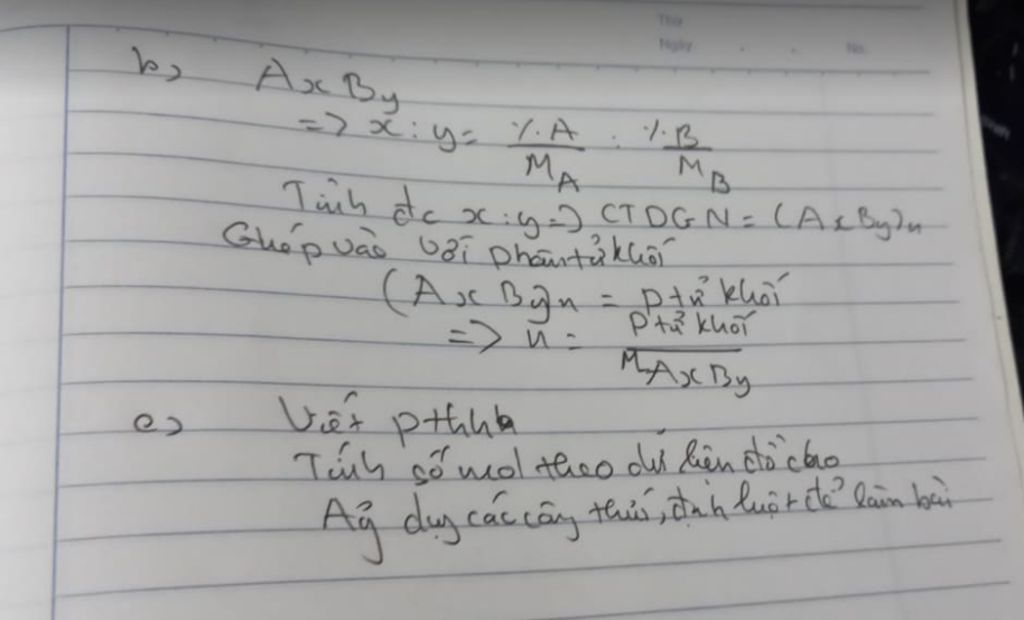 Thứ
Ngày . . No.
b) AxBy
=> x : y = %A/MA : %B/MB
Tính đc x:y => CTDGN = (AxBy)n
Ghép vào với phân tử khối
(AxBy)n = ptử khối
=> n = ptử khối/MAxBy
c) Viết pthh
Tính số mol theo dữ liện đề cho
Áp dụg các côg thức, định luật để làm bài